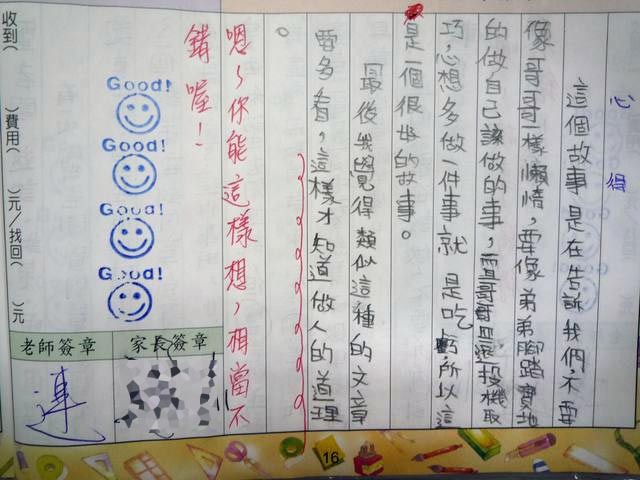 心得
這個故事是在告訴我們,不要
像哥哥一樣懶惰,要像弟弟腳踏實地
的做自己該做的事,而且哥哥還投機取
巧,心想多做一件事就是吃虧所以這
是一個很好的故事。
最後我覺得類似這種的文章
要多看,這樣才知道做人的道理
。
嗯~你能這樣想,相當不
錯喔!
Good!
Good!
Good!
Good!
老師簽章
家長簽章
連
收到(
)費用(
)元/找回(
)元
16